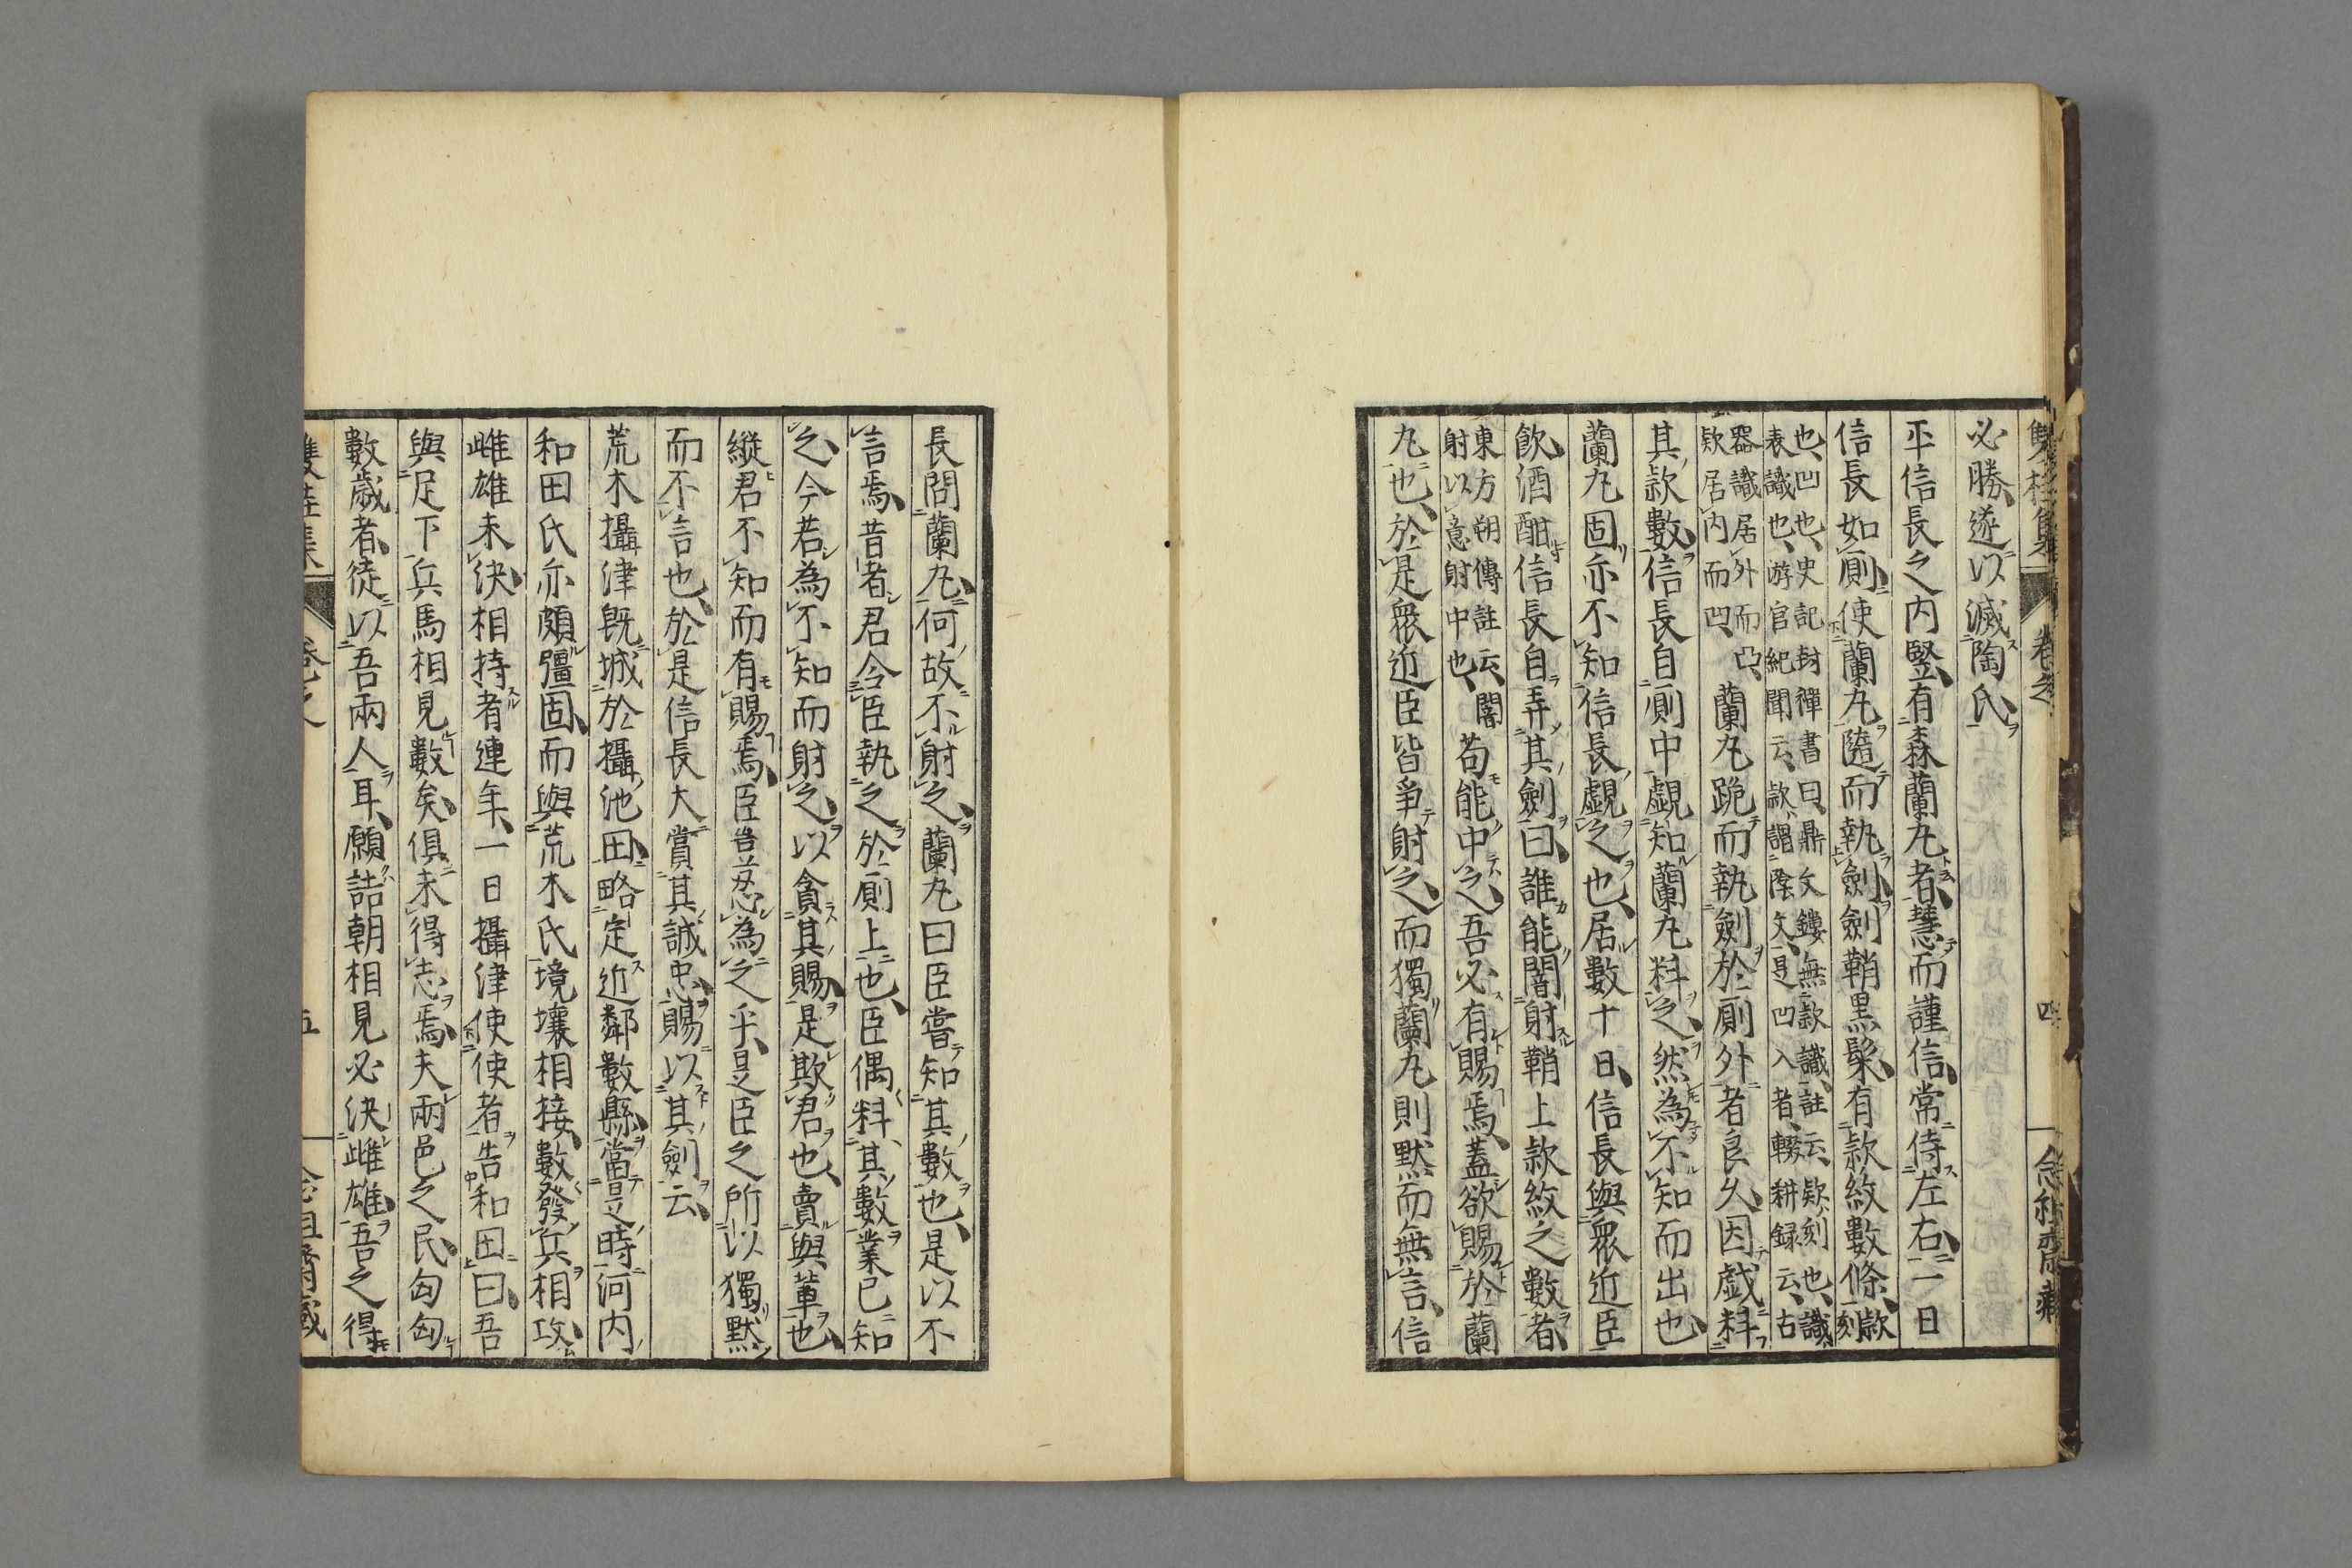 必勝、遂以滅陶氏、
平信長之内竪、有森蘭九者、慧而謹信、常侍左右、一日
信長如厠、使蘭九隨而執劍、劍鞘黒髹、有款紋數條、款刻
也、凹也、史記封禪書曰、鼎文鏤無款識、註云、欵刻也、識、
表識也、游官紀聞云、款、謂陰文、是凹入者、輟耕録云、古
器識居外而凸、
欵居内而凹、
蘭九跪而執劍於厠外者良久、因戯料
其款數、信長自厠中覷知蘭九料之、然為不知而出也、
蘭九固亦不知信長覷之也、居數十日、信長與衆近臣
飲酒酣、信長自弄其劍曰、誰能闇射鞘上款紋之數者、
東方朔傳註云、闇
射以意射中也、
苟能中之、吾必有賜焉、蓋欲賜於蘭
九也、於是衆近臣皆爭射之、而獨蘭九則黙而無言、信
長問蘭九、何故不射之、蘭九曰臣嘗知其數也、是以不
言焉、昔者君令臣執之於厠上也、臣偶料其數、業已知
之、今若為不知而射之、以貪其賜、是欺君也、賣與輩也、
縱君不知而有賜焉、臣豈忍為之乎、是臣之所以獨黙
而不言也、於是信長大賞其誠忠、賜以其劍云、
荒木攝津既城於攝池田、略定近鄰數縣、當是時、河内
和田氏亦頗彊固、而與荒木氏境壤相接、數發兵相攻、
雌雄未決、相持者連年、一日攝津使使者告和田曰、吾
與足下兵馬相見數矣、倶未得志焉、夫兩邑之民、匈匈
數歳者、徒以吾兩人耳、願詰朝相見必決雌雄、吾之得